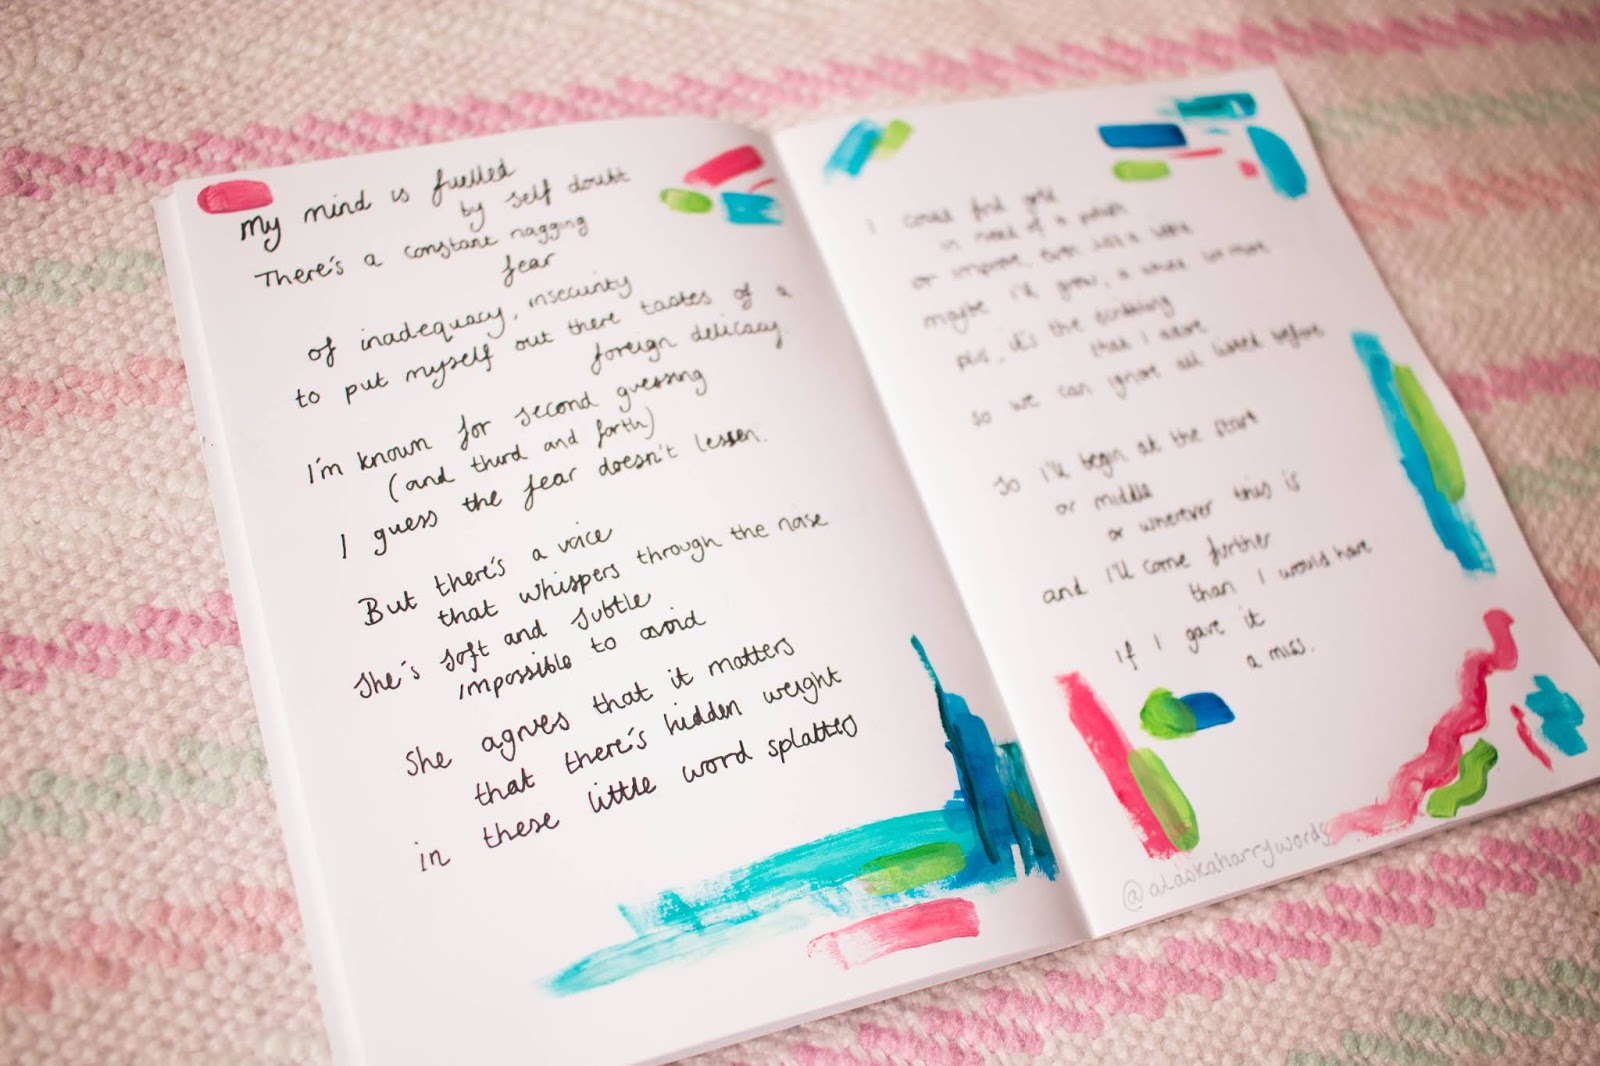 My mind is fuelled
by self doubt
There's a constant nagging
fear
of inadequacy, insecurity
to put myself out there tastes of a
foreign delicacy.
I'm known for second guessing
(and third and forth)
I guess the fear doesn't lessen.
But there's a voice
that whispers through the noise
She's soft and subtle
impossible to avoid
She agrees that it matters
that there's hidden weight
in these little word splatters
I could find gold
in need of a polish
or improve, even just a
maybe I'll grow, a
plus, it's the scribbling
that I adore
so we can ignore all listed before
So I'll begin at the start
or middle
or wherever this is
and I'll come further
than I would have
if I gave it
a miss.
@alaskaharrywords